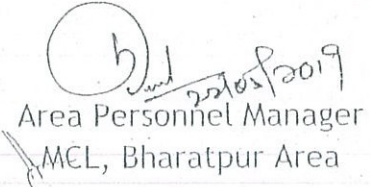 22/05/2019
Area Personnel Manager
MCL, Bharatpur Area